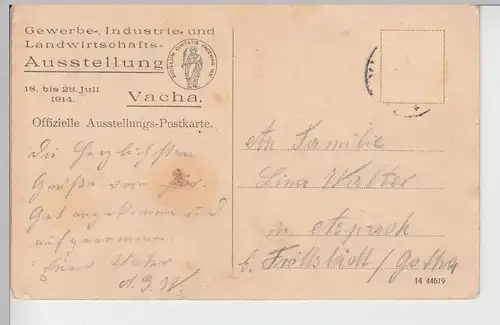 Gewerbe-, Industrie- und
Landwirtschafts-
Ausstellung
18. bis 28. Juli
1914.
Vacha.
Offizielle Ausstellungs-Postkarte.
Die herzlichsten
Grüße von hier.
Gut angekommen und
aufgenommen
Euer Vater
A. G. W.
An Familie
Lina Walter
in Aspach
b. Fröttstädt / Gotha
14 44619